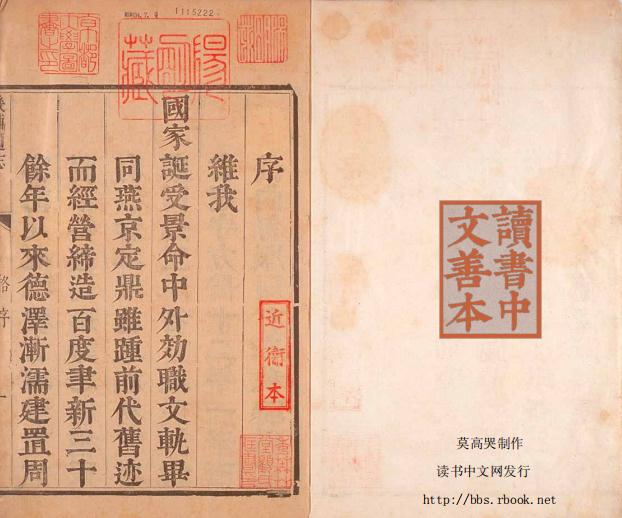 1115222
京都
大學圖
書之印
序
維我
國家誕受景命中外効職文軌畢
同燕京定鼎雖踵前代舊迹
而經營締造百度聿新三十
餘年以來德澤漸濡建置周
近衛本
讀書中
文善本
莫高哭制作
读书中文网发行
http://bbs.rbook.net